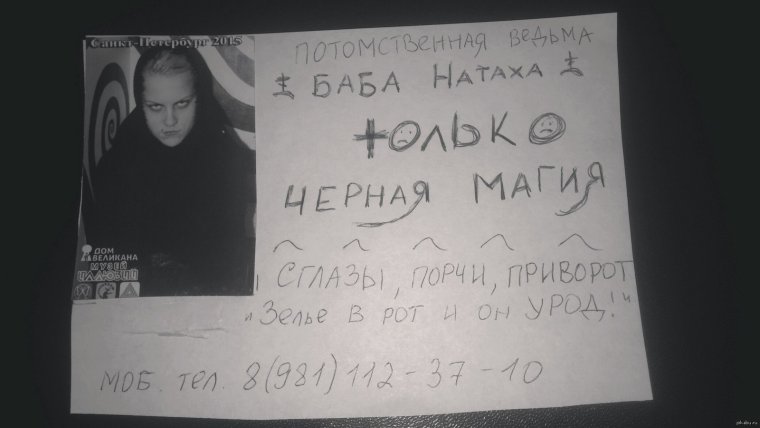 Санкт-Петербург 2015
ДОМ
ВЕЛИКАНА
МУЗЕЙ
ИЛЛЮЗИЙ
ПОТОМСТВЕННАЯ ВЕДЬМА
БАБА НАТАХА
ТОЛЬКО
ЧЕРНАЯ МАГИЯ
СГЛАЗЫ, ПОРЧИ, ПРИВОРОТ
"Зелье в рот и он УРОД!"
МОБ. тел. 8(981)112-37-10